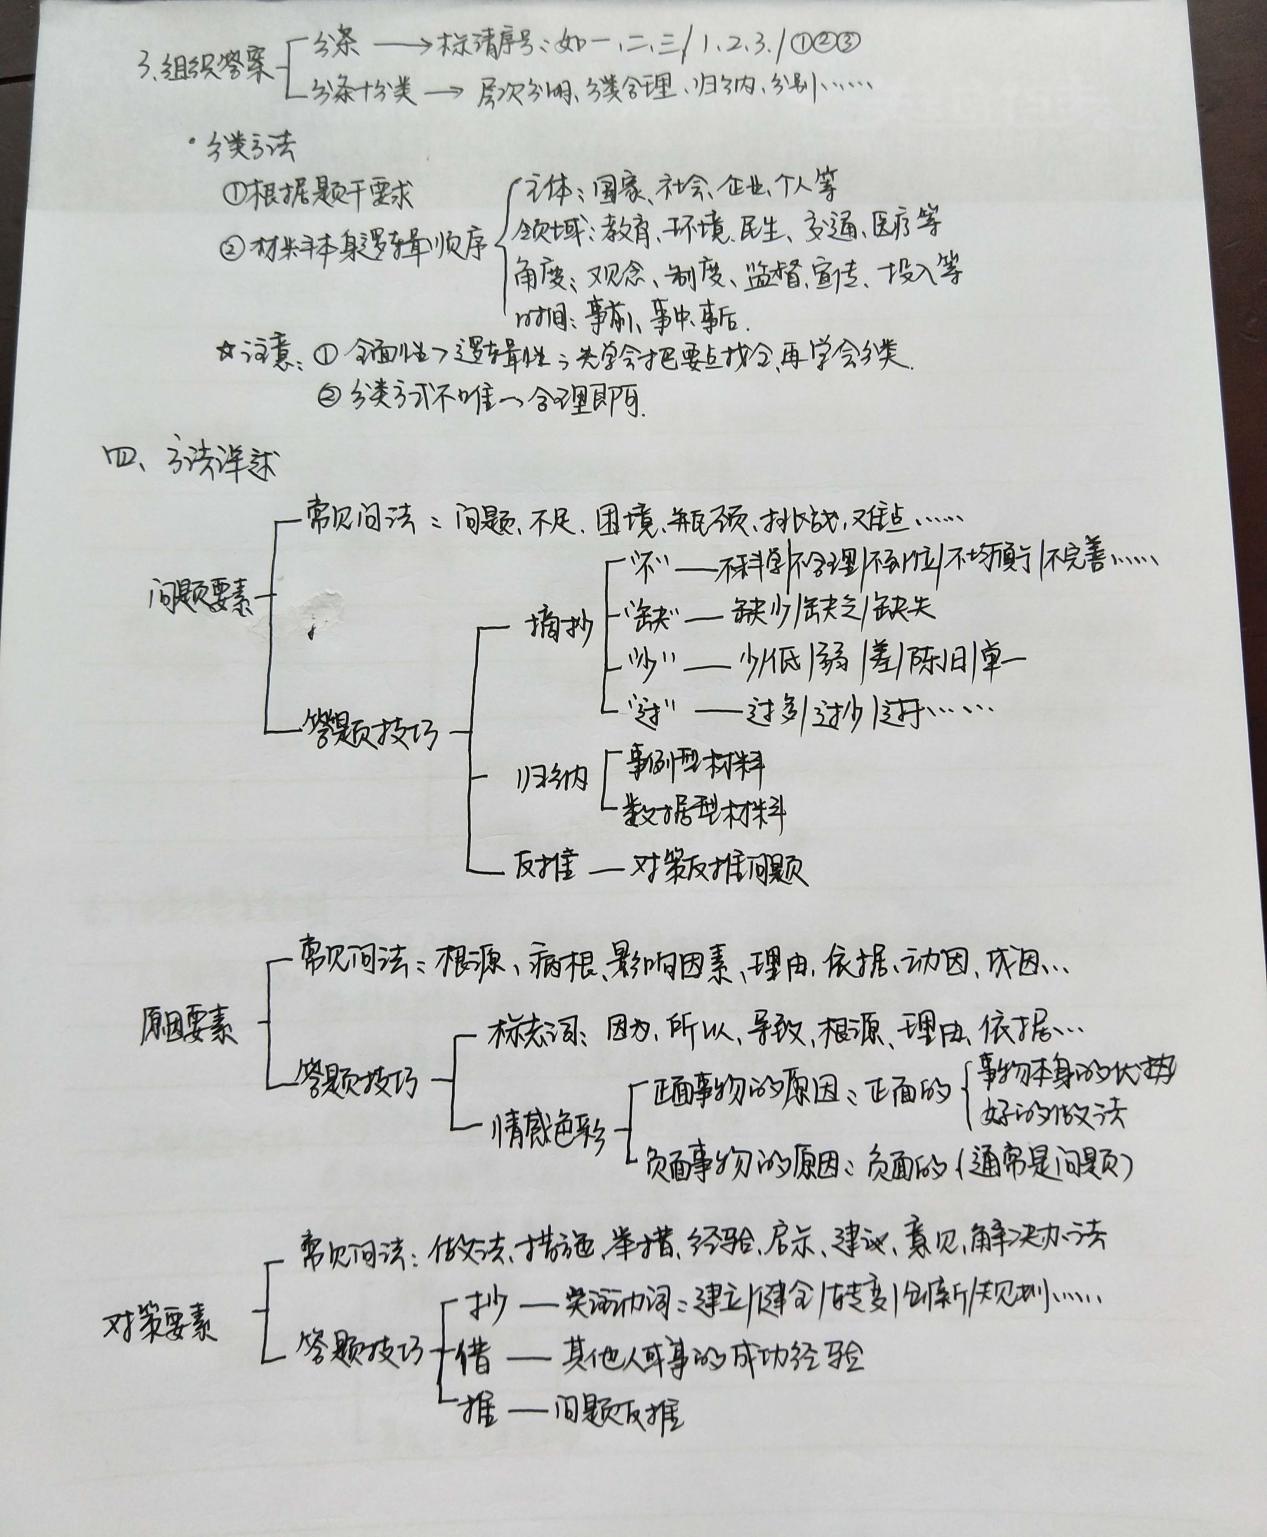 3、组织答案
分条 → 标清序号：如一、二、三/1、2、3./①②③
分条+分类 → 层次分明、分类合理、归纳、分别……
·分类方法
①根据题干要求
②材料本身逻辑顺序
主体：国家、社会、企业、个人等
领域：教育、环境、民生、交通、医疗等
角度：观念、制度、监督、宣传、投入等
时间：事前、事中、事后.
☆注意：①全面性>逻辑性：先学会把要点找全,再学会分类.
②分类方式不唯一,合理即可.
四、方法详述
问题要素
常见问法：问题、不足、困境、瓶颈、挑战、难点……
答题技巧
摘抄
“不”——不科学/不合理/不到位/不均衡/不完善……
“缺”——缺少/缺乏/缺失
“少”——少/低/弱/差/陈旧/单一
“过”——过多/过少/过于……
归纳
事例型材料
数据型材料
反推——对策反推问题
原因要素
常见问法：根源、病根、影响因素、理由、依据、动因、成因…
答题技巧
标志词：因为、所以、导致、根源、理由、依据…
情感色彩
正面事物的原因：正面的
事物本身的优势
好的做法
负面事物的原因：负面的(通常是问题)
对策要素
常见问法：做法、措施、举措、经验、启示、建议、意见、解决办法
答题技巧
抄——关注动词：建立/健全/转变/创新/规划……
借——其他人或事的成功经验
推——问题反推